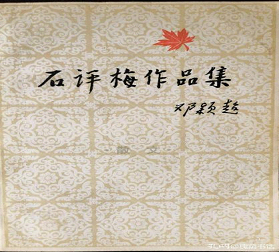 石评梅作品集
邓颖超
散文